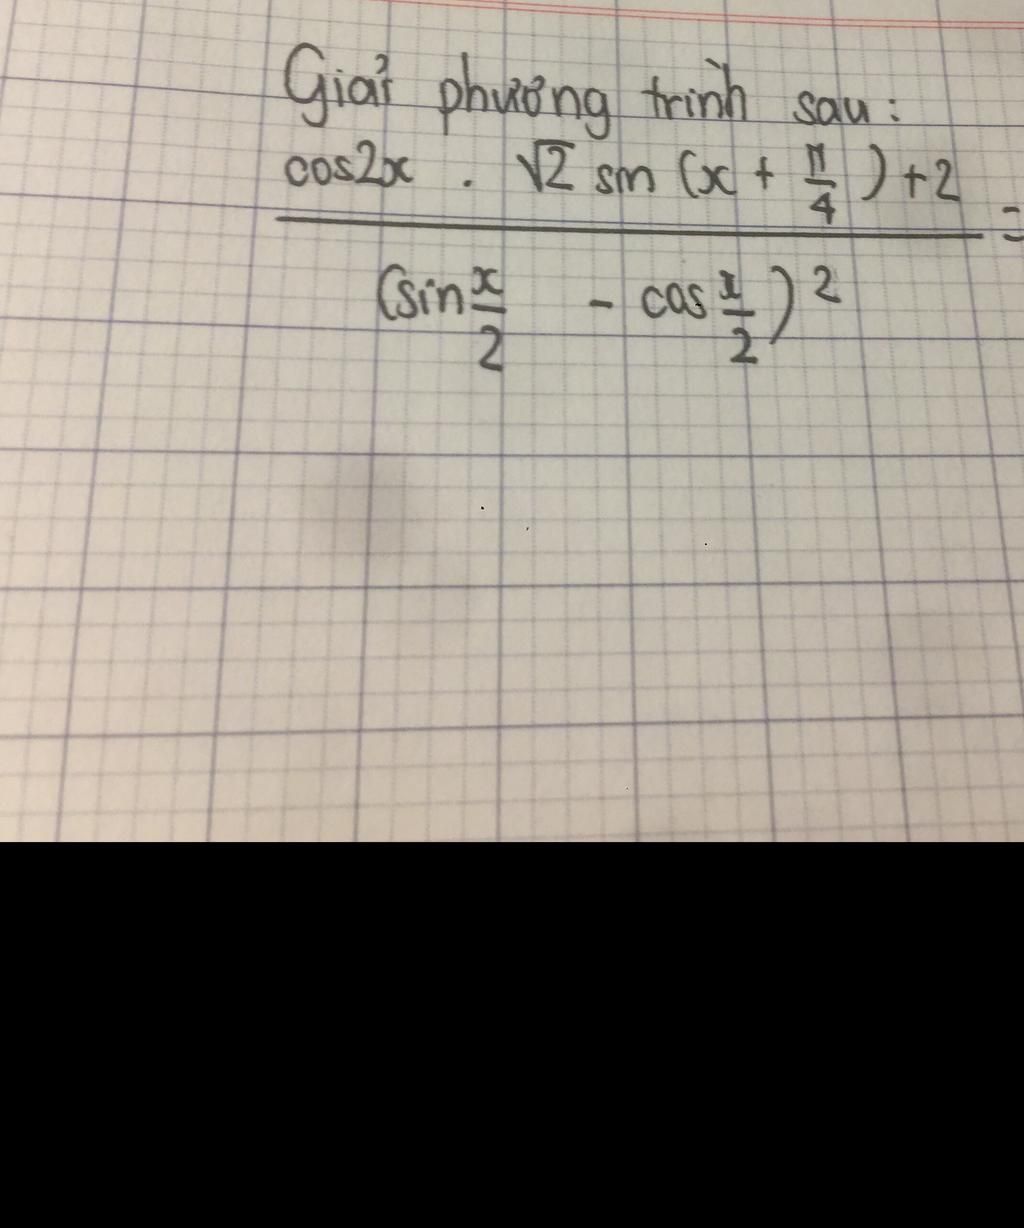 Giải phương trình sau:
cos2x . √2 sin (x + π/4) + 2 =
(sin x/2 - cos x/2)²